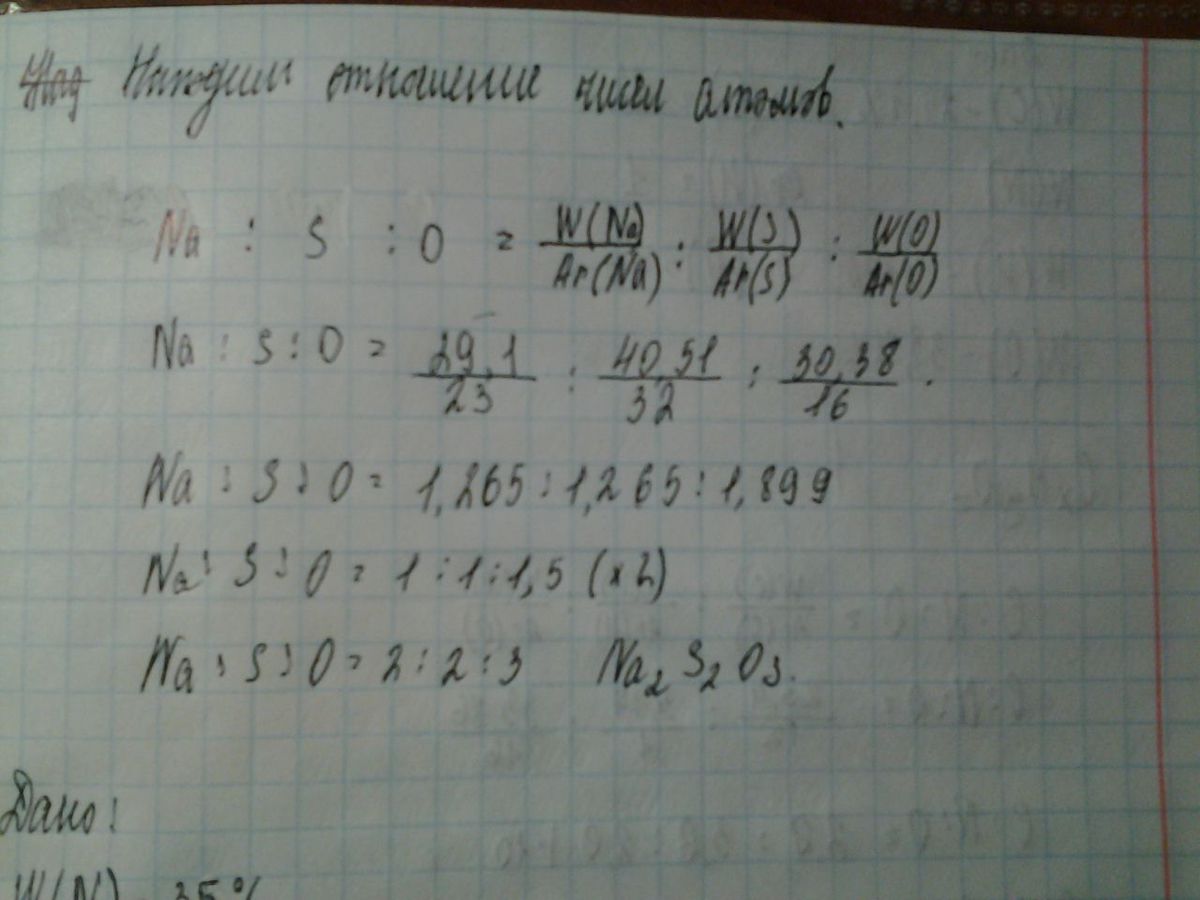 Находим отношение чисел атомов.
Na : S : O = W(Na)/Ar(Na) : W(S)/Ar(S) : W(O)/Ar(O)
Na : S : O = 29,1/23 : 40,51/32 : 30,38/16.
Na : S : O = 1,265 : 1,265 : 1,899
Na : S : O = 1 : 1 : 1,5 (x2)
Na : S : O = 2 : 2 : 3 Na₂S₂O₃.
Дано:
W(N) = 35%